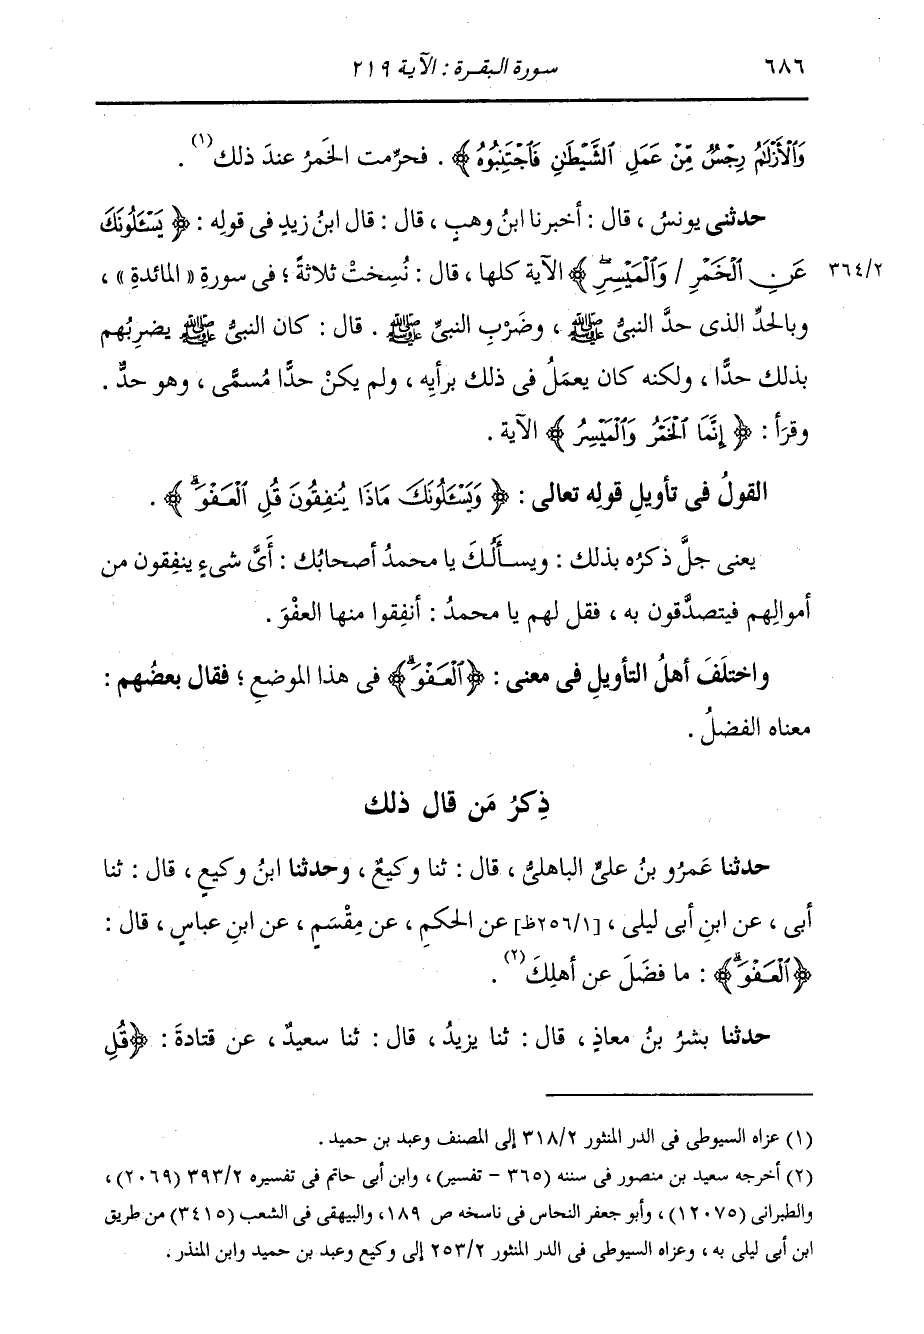 ٦٨٦ سورة البقرة : الآية ٢١٩
وَٱلْأَزْلَٰمُ رِجْسٌ مِّنْ عَمَلِ ٱلشَّيْطَٰنِ فَٱجْتَنِبُوهُ ﴾ . فحرِّمت الخَمرُ عندَ ذلك(١) .
حدثنى يونسُ ، قال : أخبرنا ابنُ وهبٍ ، قال : قال ابنُ زيدٍ فى قولِه : ﴿ يَسْـَٔلُونَكَ
٣٦٤/٢ عَنِ ٱلْخَمْرِ / وَٱلْمَيْسِرِۖ ﴾ الآية كلها ، قال : نُسِختْ ثلاثةً ؛ فى سورةِ « المائدةِ » ،
وبالحدِّ الذى حدَّ النبىُّ ﷺ ، وضَرْبِ النبىِّ ﷺ . قال : كان النبىُّ ﷺ يضرِبُهم
بذلك حدًّا ، ولكنه كان يعمَلُ فى ذلك برأيِه ، ولم يكنْ حدًّا مُسمًّى ، وهو حدٌّ .
وقرَأ : ﴿ إِنَّمَا ٱلْخَمْرُ وَٱلْمَيْسِرُ ﴾ الآية .
القولُ فى تأويلِ قولِه تعالى : ﴿ وَيَسْـَٔلُونَكَ مَاذَا يُنفِقُونَ قُلِ ٱلْعَفْوَۗ ﴾ .
يعنى جلَّ ذكرُه بذلك : ويسألُكَ يا محمدُ أصحابُك : أىَّ شىءٍ ينفِقون من
أموالِهم فيتصدَّقون به ، فقل لهم يا محمدُ : أنفِقوا منها العفْوَ .
واختلَفَ أهلُ التأويلِ فى معنى : ﴿ٱلْعَفْوَۗ﴾ فى هذا الموضعِ ؛ فقال بعضُهم :
معناه الفضلُ .
ذِكرُ مَن قال ذلك
حدثنا عَمرُو بنُ علىٍّ الباهلىُّ ، قال : ثنا وكيعٌ ، وحدثنا ابنُ وكيعٍ ، قال : ثنا
أبى ، عن ابنِ أبى ليلى ، [٢٥٦/١ظ] عن الحكمِ ، عن مِقْسَمٍ ، عن ابنِ عباسٍ ، قال :
﴿ٱلْعَفْوَۗ﴾ : ما فضَلَ عن أهلِكَ(٢) .
حدثنا بشرُ بنُ معاذٍ ، قال : ثنا يزيدُ ، قال : ثنا سعيدٌ ، عن قتادةَ : ﴿قُلِ
(١) عزاه السيوطى فى الدر المنثور ٣١٨/٢ إلى المصنف وعبد بن حميد .
(٢) أخرجه سعيد بن منصور فى سننه (٣٦٥ - تفسير) ، وابن أبى حاتم فى تفسيره ٣٩٣/٢ (٢٠٦٩) ،
والطبرانى (١٢٠٧٥) ، وأبو جعفر النحاس فى ناسخه ص ١٨٩، والبيهقى فى الشعب (٣٤١٥) من طريق
ابن أبى ليلى به ، وعزاه السيوطى فى الدر المنثور ٢٥٣/٢ إلى وكيع وعبد بن حميد وابن المنذر .